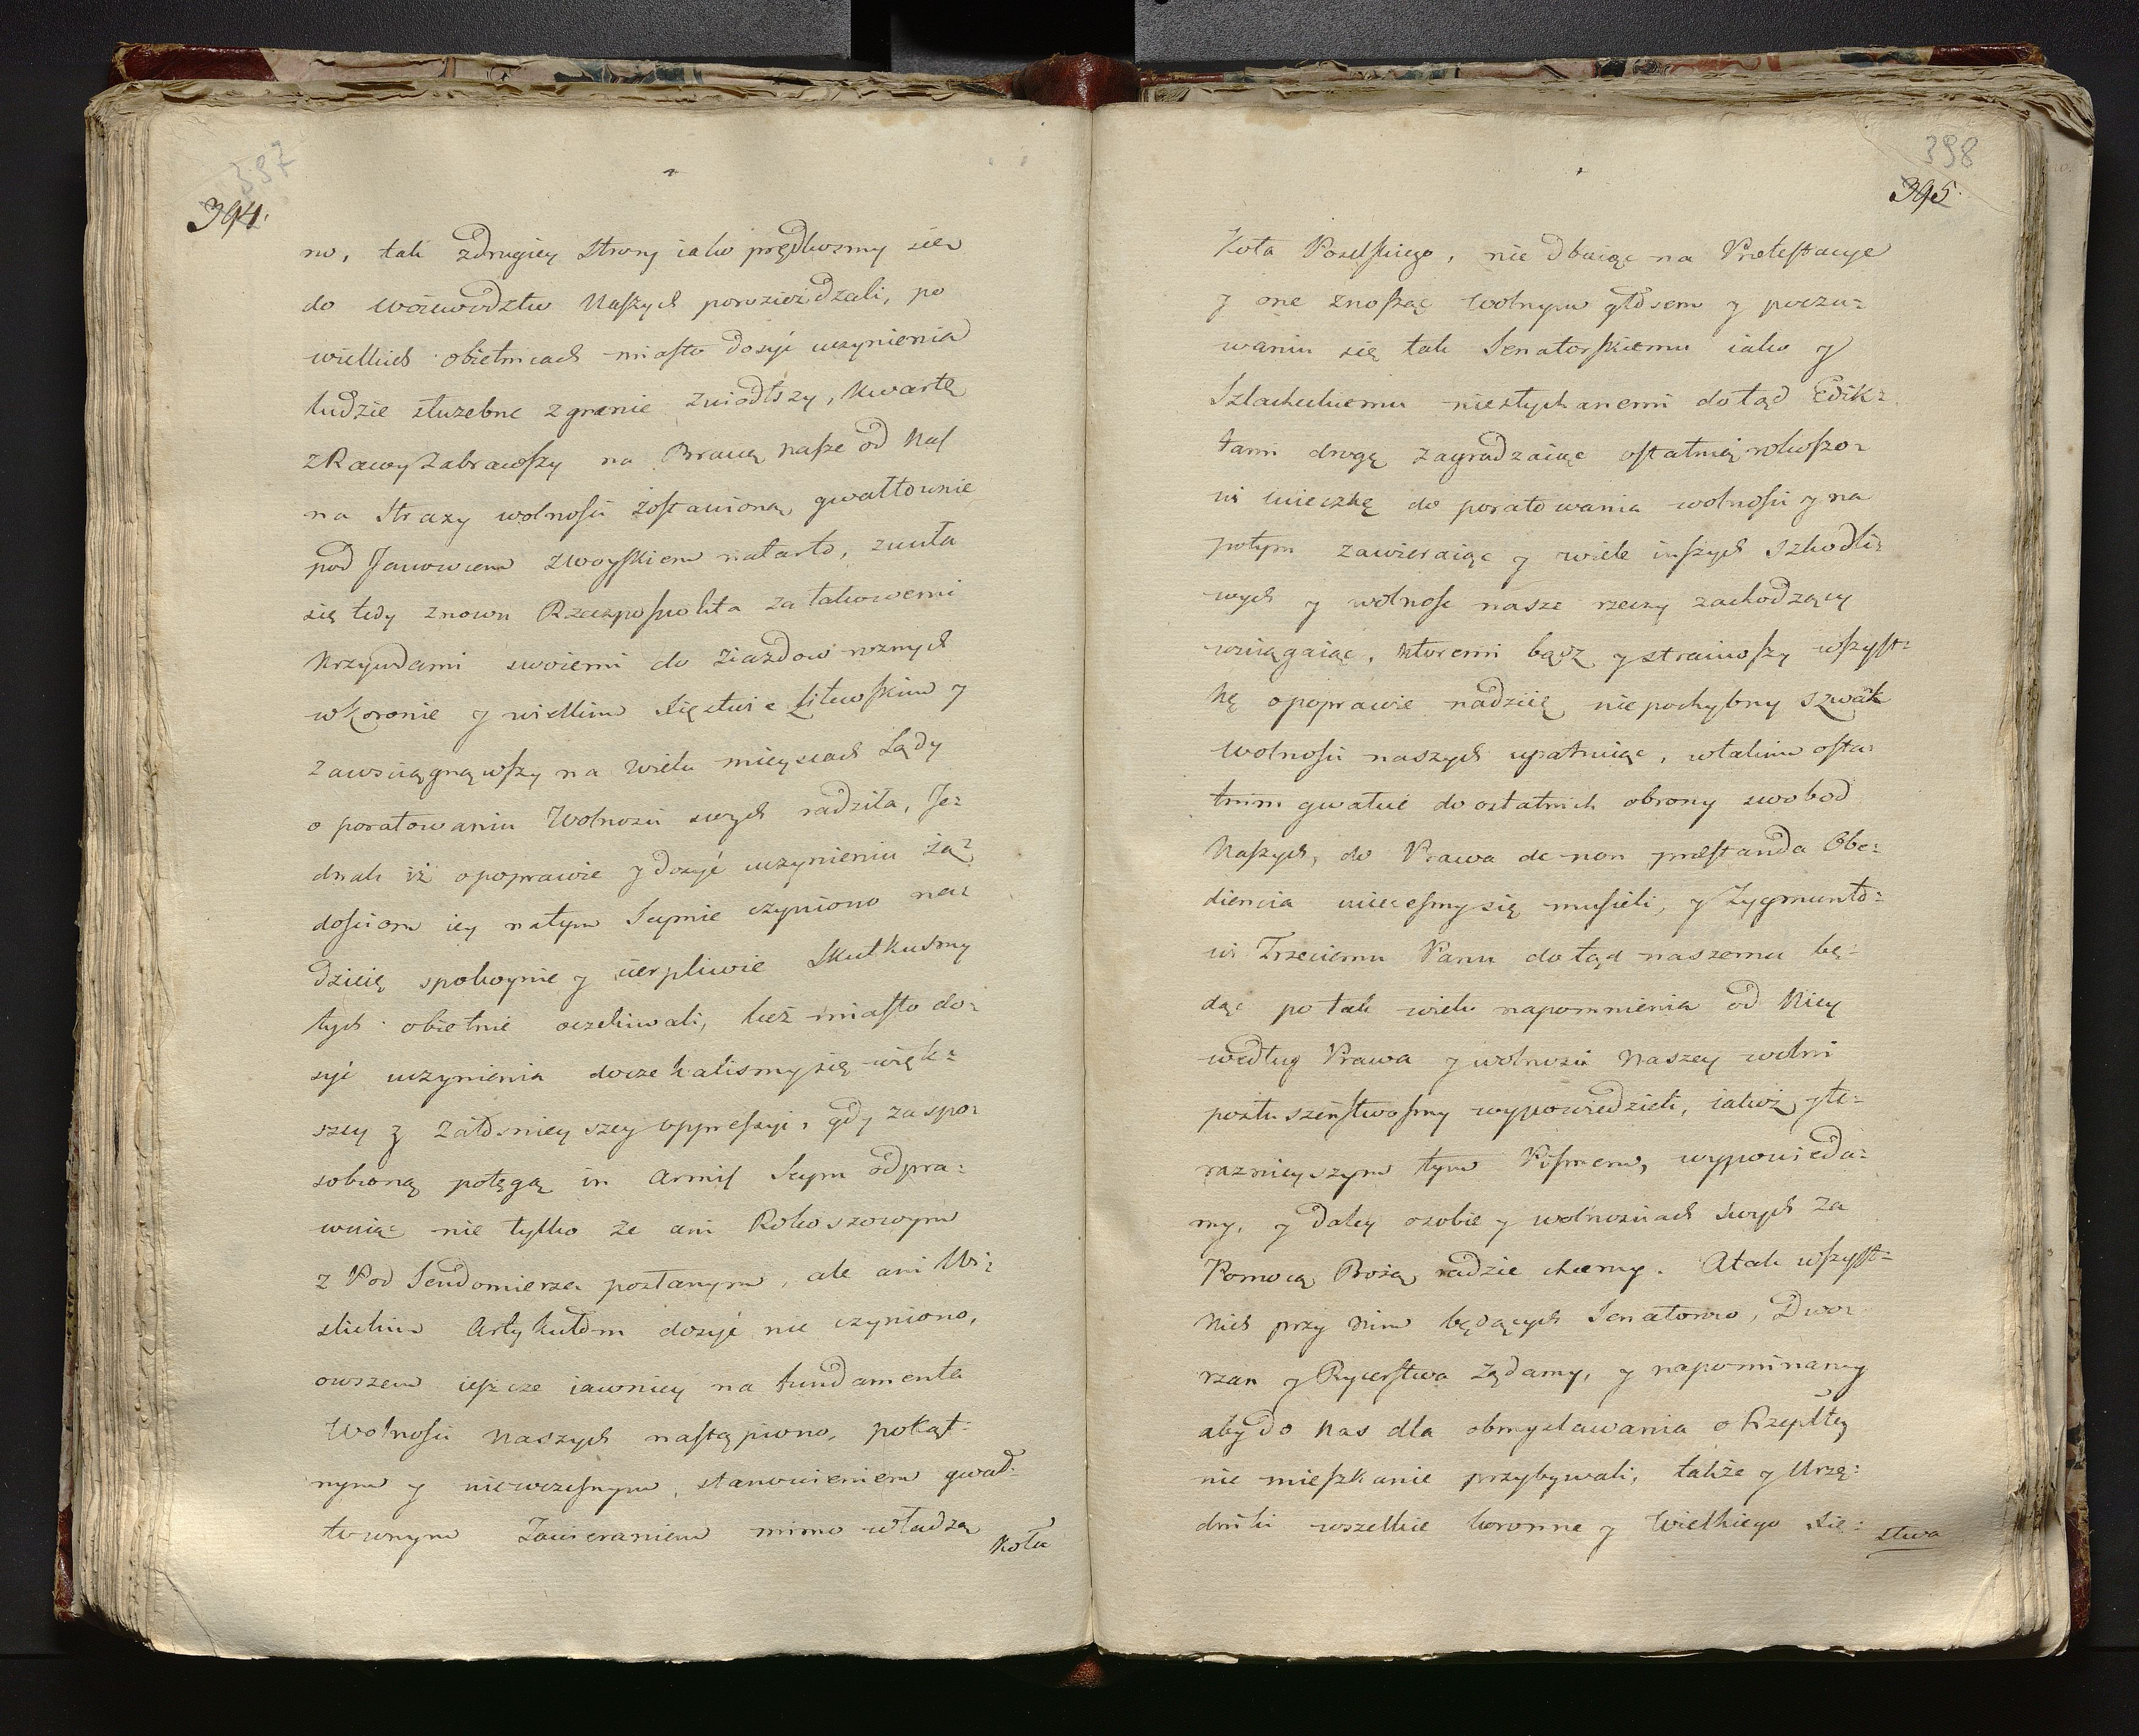 397
394.
no, tak zdrugiey Strony iako prędkosmy sie
do woiewodztw Naszych porozieżdzali, po
wielkich obietnicach miasto dosyć uczynienia
ludzie służebne zgranic zwiodłszy, Kwartę
z Rawy Zabrawszy na Bracią nasze od Nas
na Straży wolności zostawioną, gwałtownie
pod Janowcem Zwoyskiem natarto, zięła
się tedy znowu Rzeczpospolita za takowemi
Krzywdami swoiemi do Ziazdow roznych
w Koronie y wielkim Xięstwie Litewskim y
Zawsciągnąwszy na wielu mieyscach Lądy
o poratowaniu Wolnosci swych radziła, Je-
dnak iż o poprawie y dosyć uczynieniu żą-
dosciom iey natym Seymie czyniono na-
dzieię spokoynie y cierpliwie Skutkusmy
tych obietnic oczekiwali, lecz miasto do-
syć uczynienia doczekalismy się więk-
szey y Załosnieyszey oppressyi, gdy zaspo-
sobioną potęgą in Armis Seym odpra-
wuiąc nie tylko że ani Rokoszowym
z Pod Sendomierza posłanym, ale ani Wi-
slickim Artykułom dosyć nie czyniono,
owszem ieszcze iawniey na fundamenta
Wolnosci Naszych nastąpiono, pokąt-
nym y niewczesnym stanowieniem gwał-
townym Zawieraniem mimo władzą
Koła
398
395.
Koła Poselskiego, nie dbaiąc na Protestacye
y one znosząc Wolnym głosem y poczu-
waniu się tak Senatorskiemu iako y
Szlacheckiemu niesłychanemi dotąd Edik-
tami drogę zagradzaiąc ostatnią rokoszo-
wi ucieczkę do poratowania wolnosci y na
potym zawieraiąc y wiele inszych Szkodli-
wych y wolnosc nasze rzeczy zachodzący
wciągaiąc, Ktoremi będąc y straciwszy wszyst-
kę o poprawie nadzieię niepochybny Szwank
Wolnosci naszych upatruiąc, w takim osta-
tnim gwałcie do ostatnich obrony swobod
Naszych, do Prawa de non præstanda Obe-
diencia uciecesmy się musieli, y Zygmunto-
wi Trzeciemu Panu dotąd naszemu bę-
dąc po tak wielu napomnienia od Niey
według Prawa y wolnosci Naszey wolni
posłuszeństwosmy wypowiedzieli, iakoż y te-
raznieyszym tym Pismem, wypowieda-
my, y daley o sobie y wolnosciach Swych za
Pomocą Bożą radzic chcemy. A tak wszyst-
kich przy Nim będących Senatorow, Dwo-
rzan y Rycerstwa Żądamy, y napominamy
aby do Nas dla obmyslawania o Rzepltey
nie mieszkanie przybywali, także y Urzę-
dniki wszelkie koronne y Wielkiego Xię-
stwa